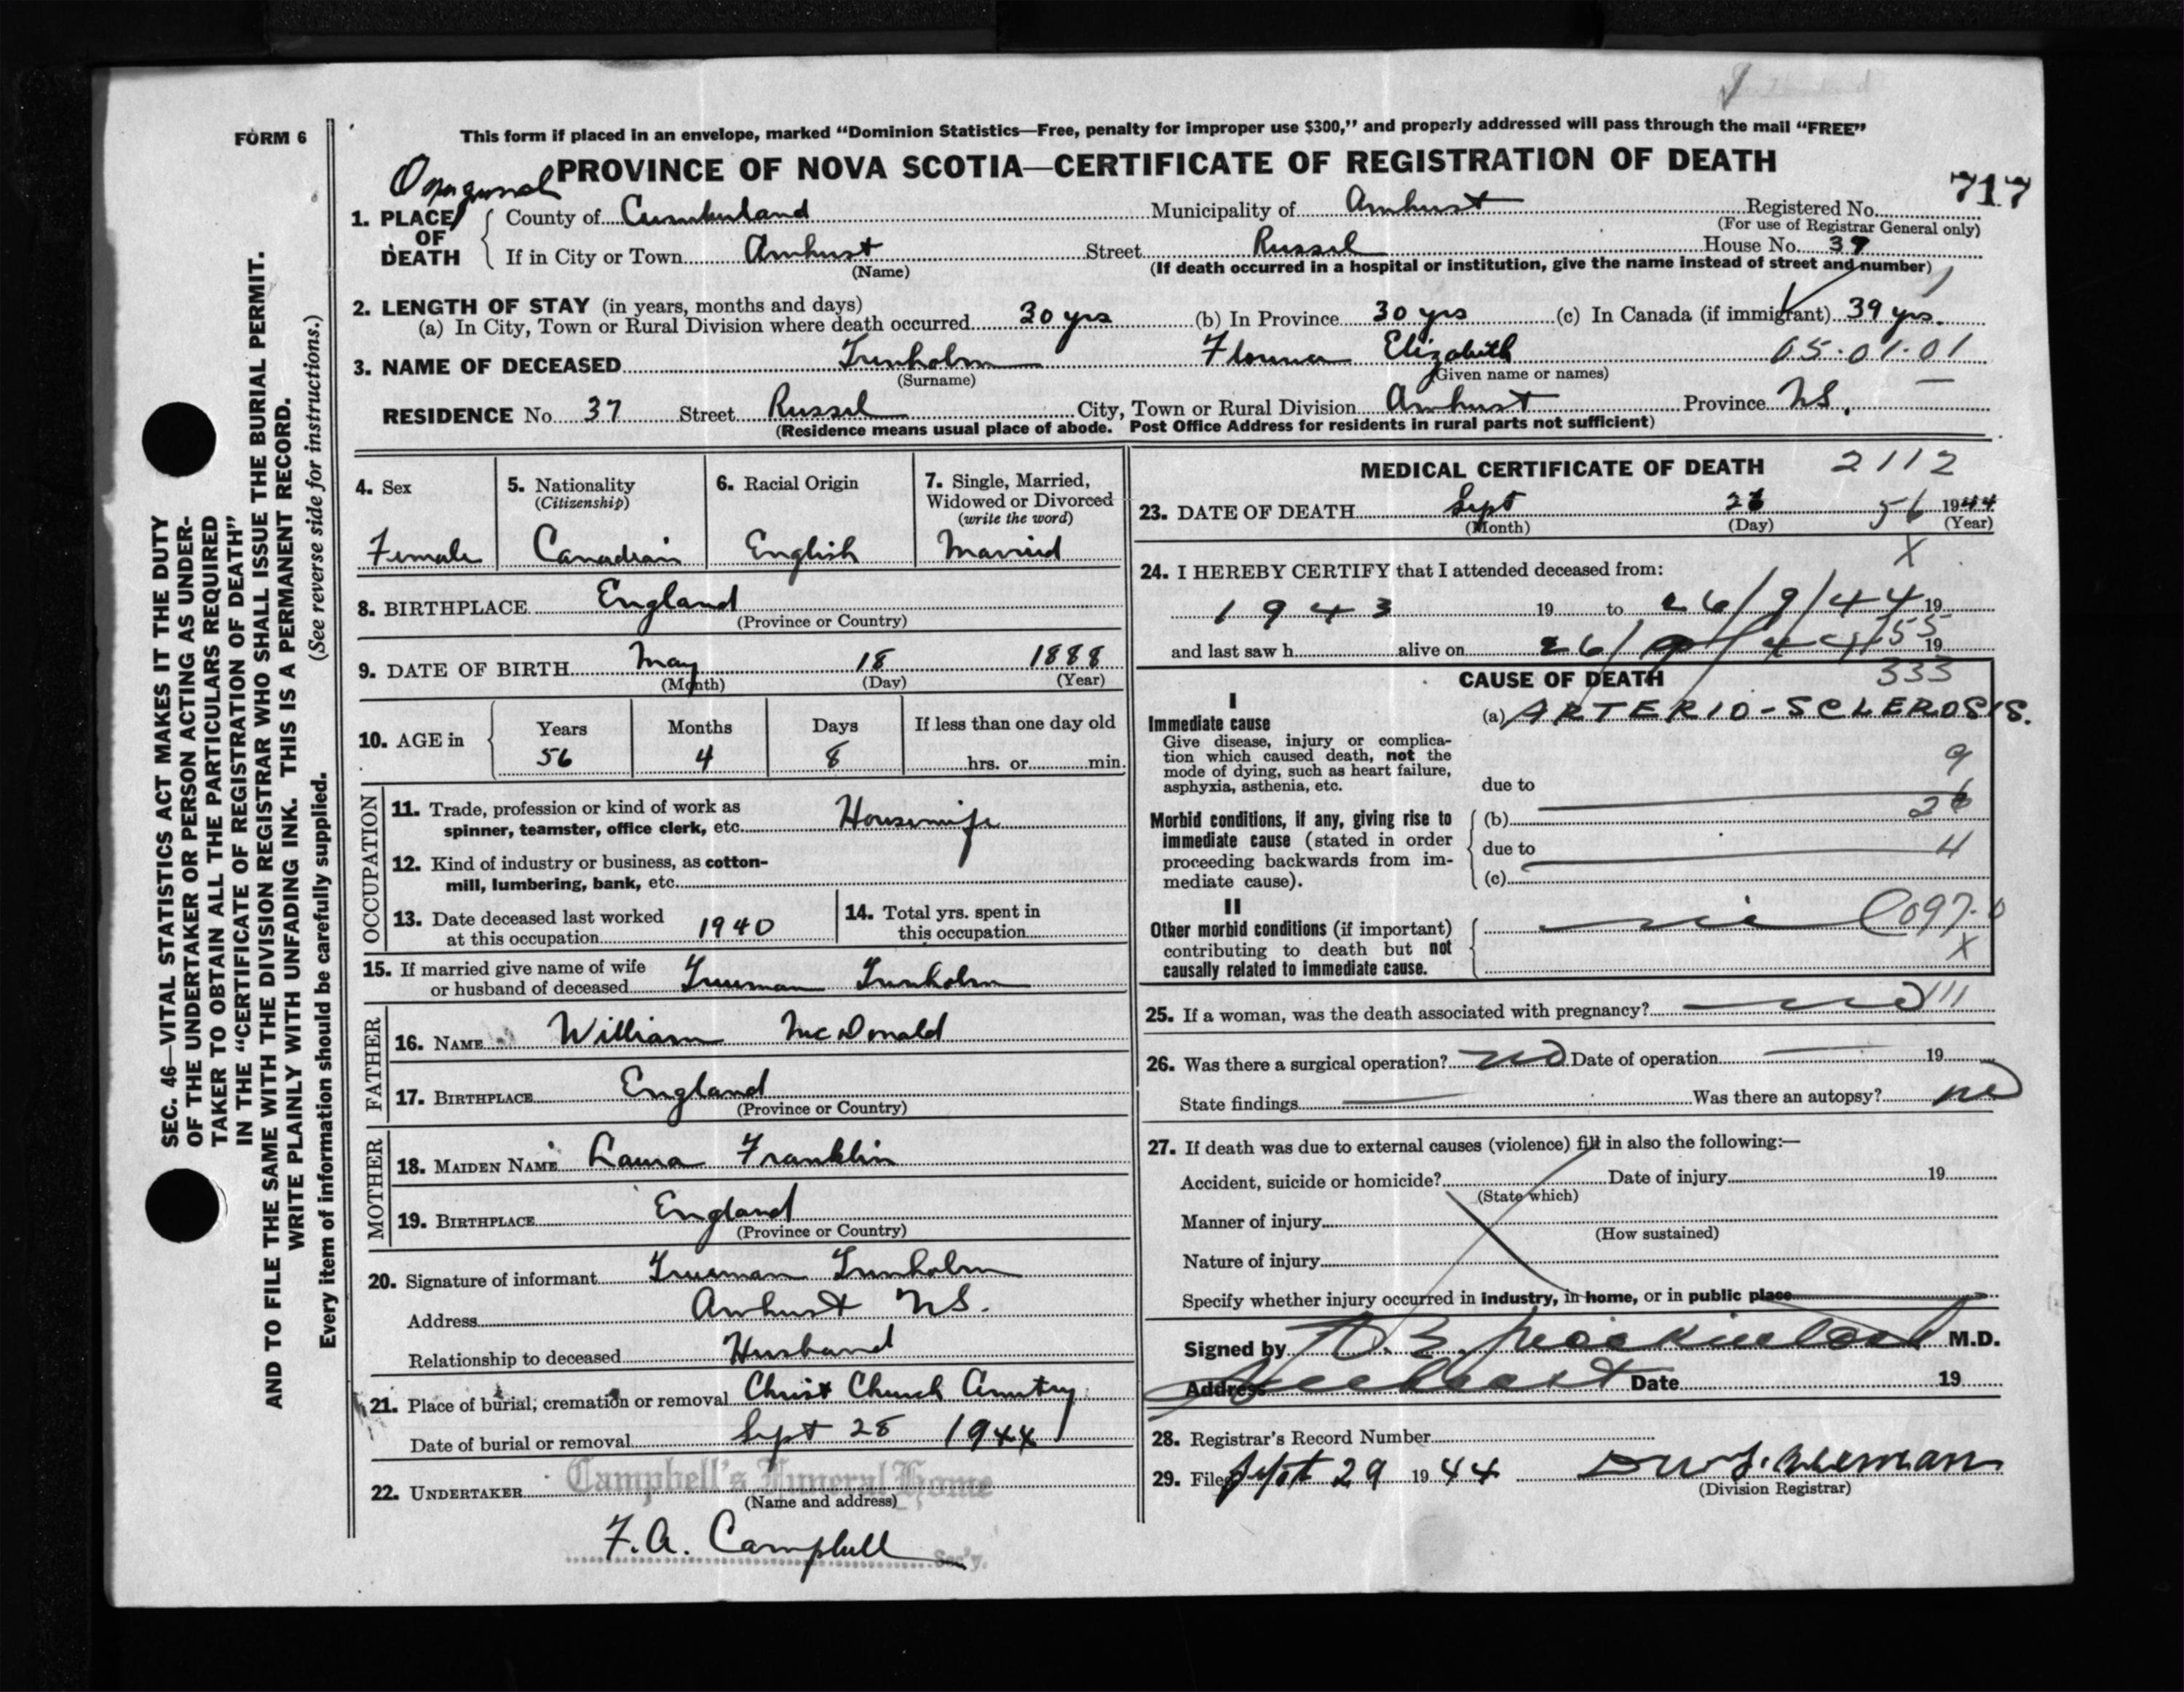 FORM 6
This form if placed in an envelope, marked “Dominion Statistics—Free, penalty for improper use $300,” and properly addressed will pass through the mail “FREE”
PROVINCE OF NOVA SCOTIA—CERTIFICATE OF REGISTRATION OF DEATH
717
1. PLACE OF DEATH
County of Cumberland Municipality of Amherst Registered No.
(For use of Registrar General only)
If in City or Town Amherst Street Russel House No. 37
(Name) (If death occurred in a hospital or institution, give the name instead of street and number)
2. LENGTH OF STAY (in years, months and days)
(a) In City, Town or Rural Division where death occurred 30 yrs (b) In Province 30 yrs (c) In Canada (if immigrant) 39 yrs.
3. NAME OF DECEASED Trenholm Florence Elizabeth 05-01-01
(Surname) (Given name or names)
RESIDENCE No. 37 Street Russel City, Town or Rural Division Amherst Province N.S.
(Residence means usual place of abode. Post Office Address for residents in rural parts not sufficient)
4. Sex 5. Nationality (Citizenship) 6. Racial Origin 7. Single, Married, Widowed or Divorced (write the word)
Female Canadian English Married
8. BIRTHPLACE England
(Province or Country)
9. DATE OF BIRTH May 18 1888
(Month) (Day) (Year)
10. AGE in Years Months Days If less than one day old
56 4 8 hrs. or min.
OCCUPATION
11. Trade, profession or kind of work as
spinner, teamster, office clerk, etc. Housewife
12. Kind of industry or business, as cotton-
mill, lumbering, bank, etc.
13. Date deceased last worked
at this occupation 1940
14. Total yrs. spent in
this occupation
15. If married give name of wife
or husband of deceased Trueman Trenholm
FATHER
16. NAME William McDonald
17. BIRTHPLACE England
(Province or Country)
MOTHER
18. MAIDEN NAME Laura Franklin
19. BIRTHPLACE England
(Province or Country)
20. Signature of informant Trueman Trenholm
Address Amherst N.S.
Relationship to deceased Husband
21. Place of burial, cremation or removal Christ Church
Date of burial or removal Sept 28 1944
22. UNDERTAKER Campbell's Funeral Home
(Name and address)
F.A. Campbell Sec'y.
MEDICAL CERTIFICATE OF DEATH 2112
23. DATE OF DEATH Sept 26 56 1944
(Month) (Day) (Year)
X
24. I HEREBY CERTIFY that I attended deceased from:
1943 19 to 26/9/44 19
and last saw h alive on 26/9/44 19
155
333
CAUSE OF DEATH
I
Immediate cause
Give disease, injury or complica-
tion which caused death, not the
mode of dying, such as heart failure,
asphyxia, asthenia, etc.
(a) ARTERIO-SCLEROSIS.
9
due to
26
Morbid conditions, if any, giving rise to
immediate cause (stated in order
proceeding backwards from im-
mediate cause).
(b)
due to
4
(c)
II
Other morbid conditions (if important)
contributing to death but not
causally related to immediate cause.
097-0
X
25. If a woman, was the death associated with pregnancy? no 111
26. Was there a surgical operation? no Date of operation 19
State findings Was there an autopsy? no
27. If death was due to external causes (violence) fill in also the following:—
Accident, suicide or homicide? Date of injury 19
(State which)
Manner of injury
(How sustained)
Nature of injury
Specify whether injury occurred in industry, in home, or in public place
Signed by M.D.
Address Date 19
28. Registrar's Record Number
29. Filed Sept 29 1944
(Division Registrar)
SEC. 46—VITAL STATISTICS ACT MAKES IT THE DUTY
OF THE UNDERTAKER OR PERSON ACTING AS UNDER-
TAKER TO OBTAIN ALL THE PARTICULARS REQUIRED
IN THE “CERTIFICATE OF REGISTRATION OF DEATH”
AND TO FILE THE SAME WITH THE DIVISION REGISTRAR WHO SHALL ISSUE THE BURIAL PERMIT.
WRITE PLAINLY WITH UNFADING INK. THIS IS A PERMANENT RECORD.
Every item of information should be carefully supplied. (See reverse side for instructions.)